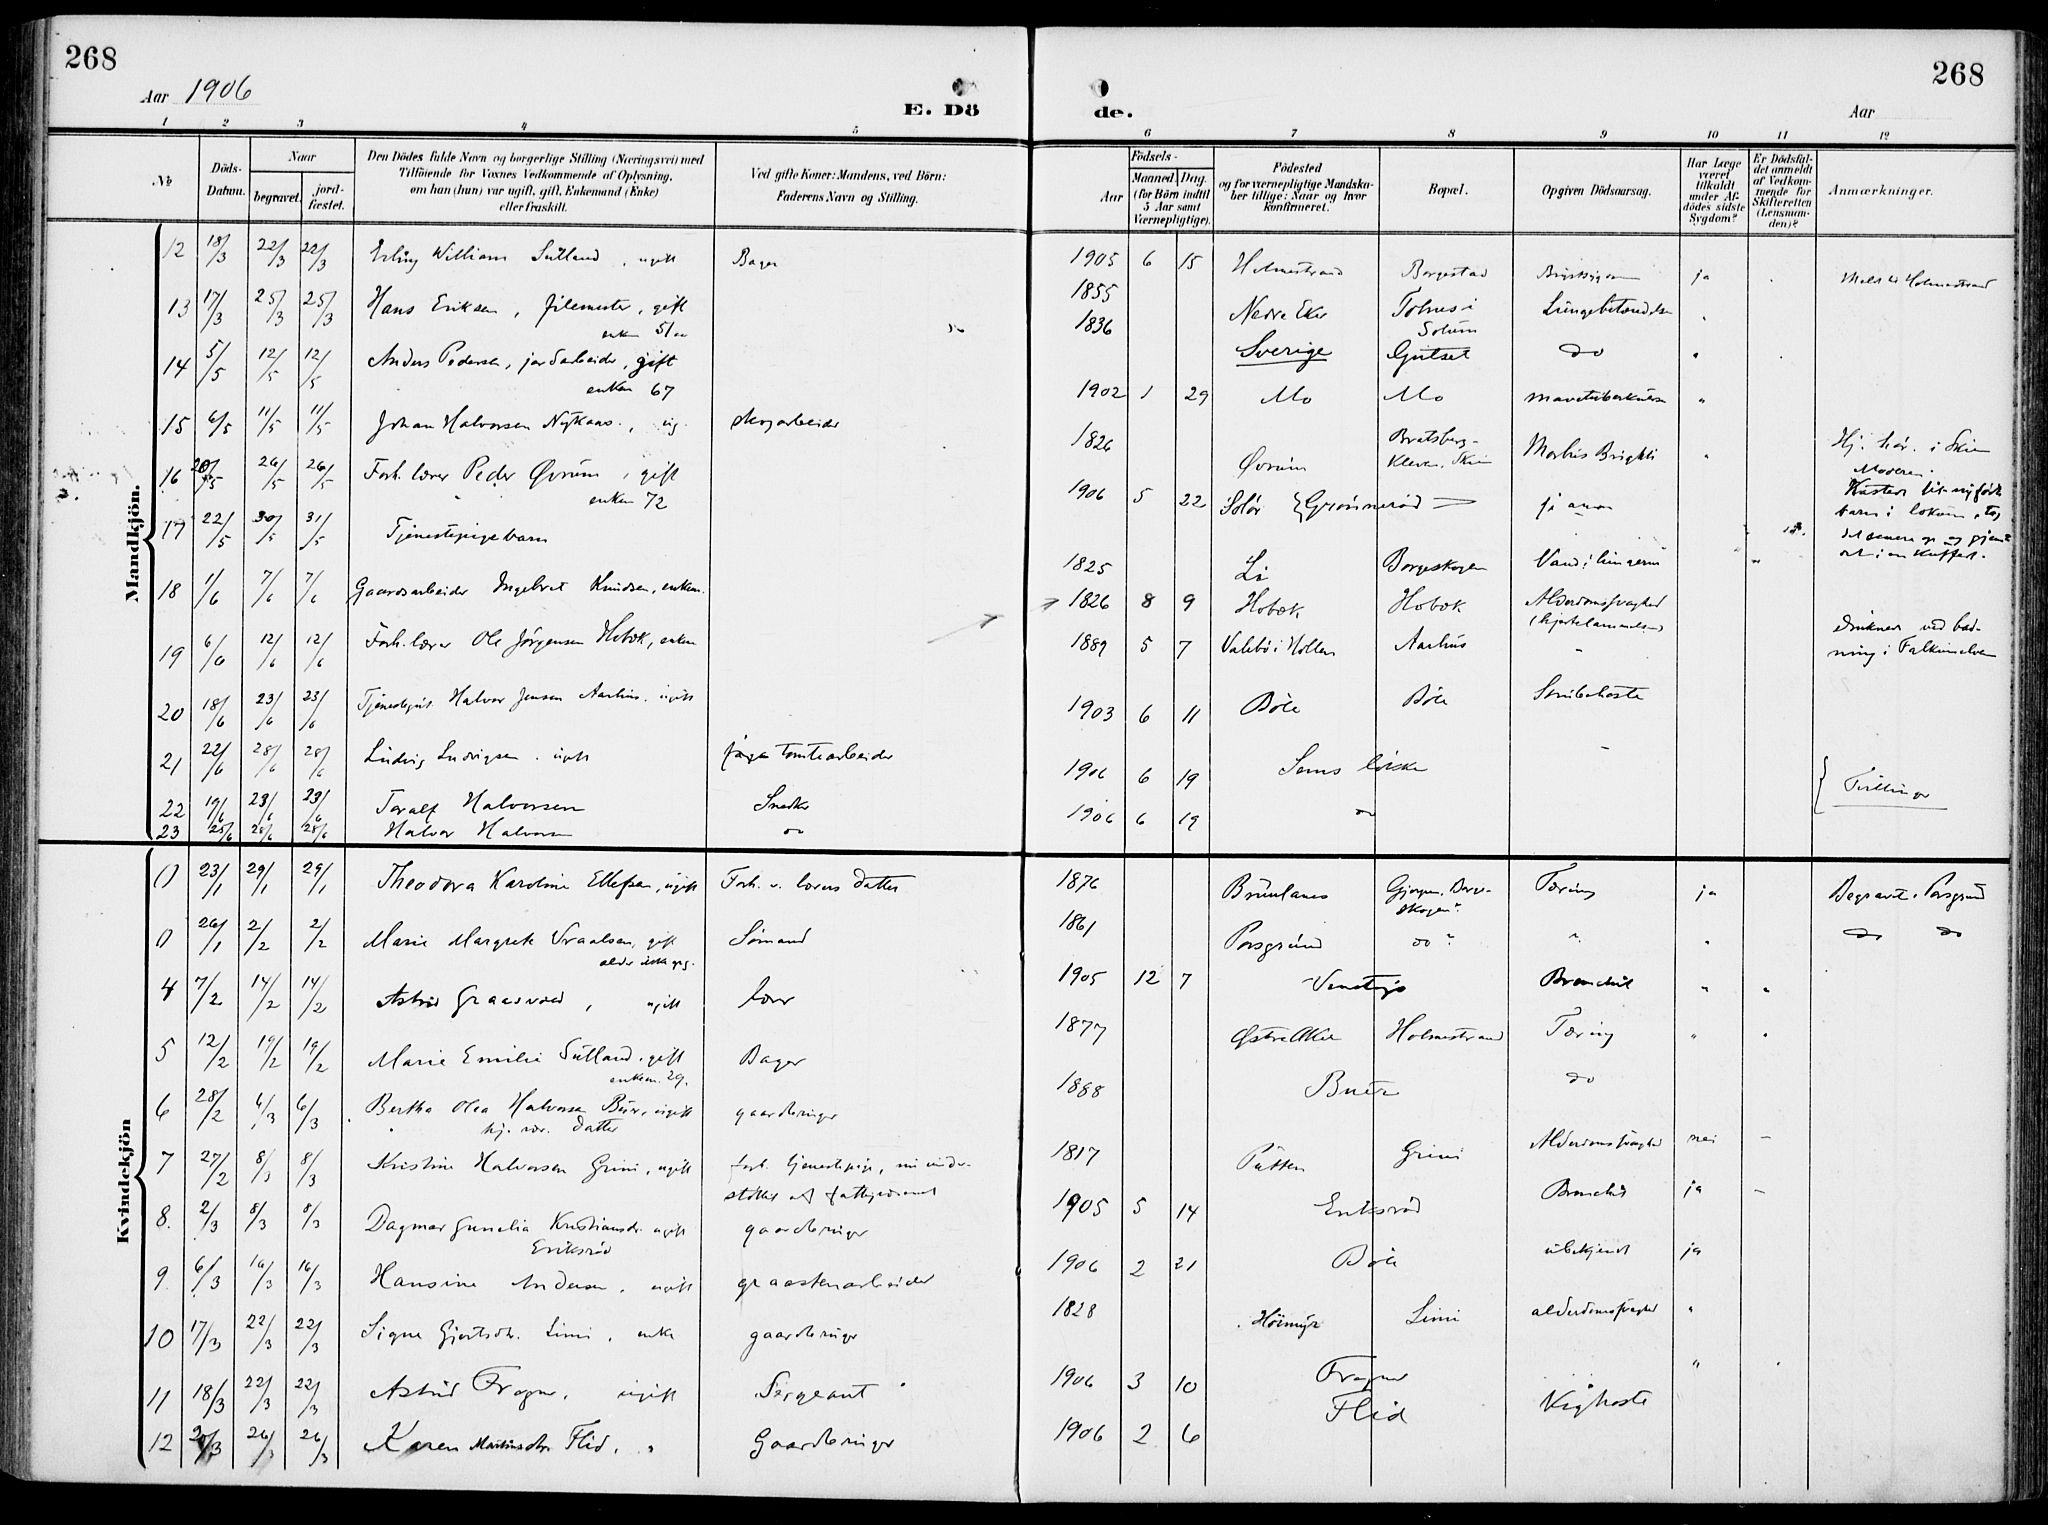 268
Aar 1906
E. Dö
de.
268
Aar
1 2 3 4 5 6 7 8 9 10 11 12
№
Döds-Datum.
Naar
begravet.
jord-fæstet.
Den Dödes fulde Navn og borgerlige Stilling (Næringsvei) med
Tilföiende for Voxnes Vedkommende af Oplysning,
om han (hun) var ugift, gift, Enkemand (Enke)
eller fraskilt.
Ved gifte Koner: Mandens, ved Börn:
Faderens Navn og Stilling.
Födsels-
Aar
Maaned. Dag.
(for Börn indtil
5 Aar samt
Værnepligtige).
Födested
og for værnepligtige Mandska-
ber tillige: Naar og hvor
konfirmeret.
Bopæl.
Opgiven Dödsaarsag.
Har Læge
været
tilkaldt
under Af-
dödes sidste
Sygdom?
Er Dödsfal-
det anmeldt
af Vedkom-
mende for
Skifteretten
(Lensman-
den)?
Anmærkninger.
Mandkjön.
12 18/3 22/3 22/3 Erling William Sütland, ugift Bager 1905 6 15 Holmestrand Borgestad ja Holmestrand
13 17/3 25/3 25/3 Hans Eriksen, filemester, gift 1855 Nedre Eker Tolnes i Solum Lungebetændelse
enken
14 5/5 12/5 12/5 Anders Pedersen, jordarbeider, gift 1836 Sverige Gulset do
enken 67
15 6/5 11/5 11/5 Johan Halvorsen Nykaas, ug. skogarbeider 1902 1 29 Mo Mo mavetuberkulose
16 20/5 26/5 26/5 Forh. lærer Peder Øvrum, gift 1826 Øvrum Bratsberg-Kleven, Skien Morbus Brighti
enken 72
17 22/5 30/5 31/5 Tjenestepigebarn 1906 5 22 Solør Grønnerød
18 1/6 7/6 7/6 Gaardsarbeider Ingebret Knudsen, enkem. 1825 Li Borgeskogen Vand i lungerne
19 6/6 12/6 12/6 Forh. lærer Ole Jørgensen Hobæk, enkem 1826 8 9 Hobæk Hobæk Alderdomssvaghed
20 18/6 23/6 23/6 Tjenestegut Halvor Jensen Aarhus, ugift 1889 5 7 Valebø i Hollen Aarhus druknede ved bad-
ning i Falkumelven
21 22/6 28/6 28/6 Ludvig Ludvigsen, ugift tomtearbeider 1903 6 11 Böle Böle Strubehoste
22 19/6 23/6 23/6 Toralf Halvorsen Snedker 1906 6 19 Tvillinger
23 25/6 28/6 28/6 Halvor Halvorsen do 1906 6 19 do
Kvindekjön
0 23/1 29/1 29/1 Theodora Karoline Ellefsen, ugift datter 1876 Brunlanes Tæring ja Begravet i Porsgrund
0 26/1 2/2 2/2 Marie Margrete Vraalsen, gift Sømand 1861 Porsgrund do " do do
4 7/2 14/2 14/2 Astrid Graasvold, ugift lærer 1905 12 7 Venstøp Bronchit
5 12/2 19/2 19/2 Marie Emilie Sütland, gift Bager 1877 Østre Aker Holmestrand Tæring
enkem. 29.
6 28/2 6/3 6/3 Bertha Olea Halvorsen Buer, ugift gaardbruger 1888 Buer do
datter
7 27/2 8/3 8/3 Kristine Halvorsen Grini, ugift forh. tjenestepige, 1817 Grini Alderdomssvaghed nei –
8. 2/3 8/3 8/3 Dagmar Gunelia Kristiansdr. ugift gaardbruger 1905 5 14 Eriksrød Bronchit ja –
Eriksrød
9 6/3 16/3 16/3 Hansine Andersen, ugift graastenarbeider 1906 2 21 Böle ubekjendt ja
10 17/3 22/3 22/3 Signe Gjertsdr. Limi, enke gaardbruger 1828 Høimyr Limi alderdomssvaghed "
11 18/3 22/3 22/3 Astrid Frogner, ugift Sergeant 1906 3 10 Frogner "
12 20/3 26/3 26/3 Karen Martinsdtr. Flid, " Gaardbruger 1906 2 6 Flid Kighoste